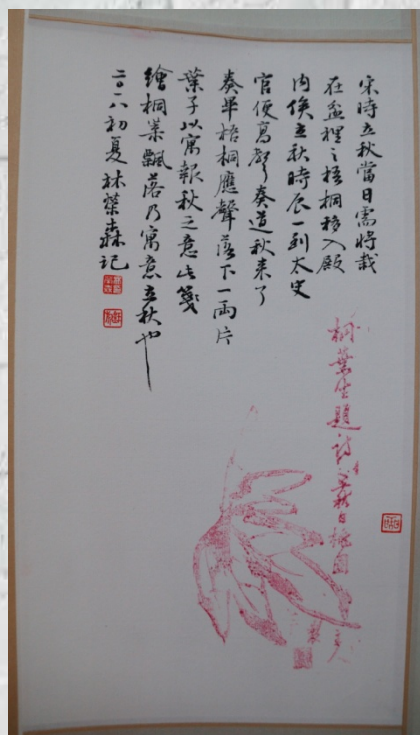 宋時立秋當日需將栽
在盆裡之梧桐移入殿
內俟立秋時辰一到太史
官便高聲奏道秋來了
奏畢梧桐應聲落下一兩片
葉子以寓報秋之意此箋
繪桐葉飄落乃寓意立秋也
二〇一八初夏林榮森記
桐葉坐題詩